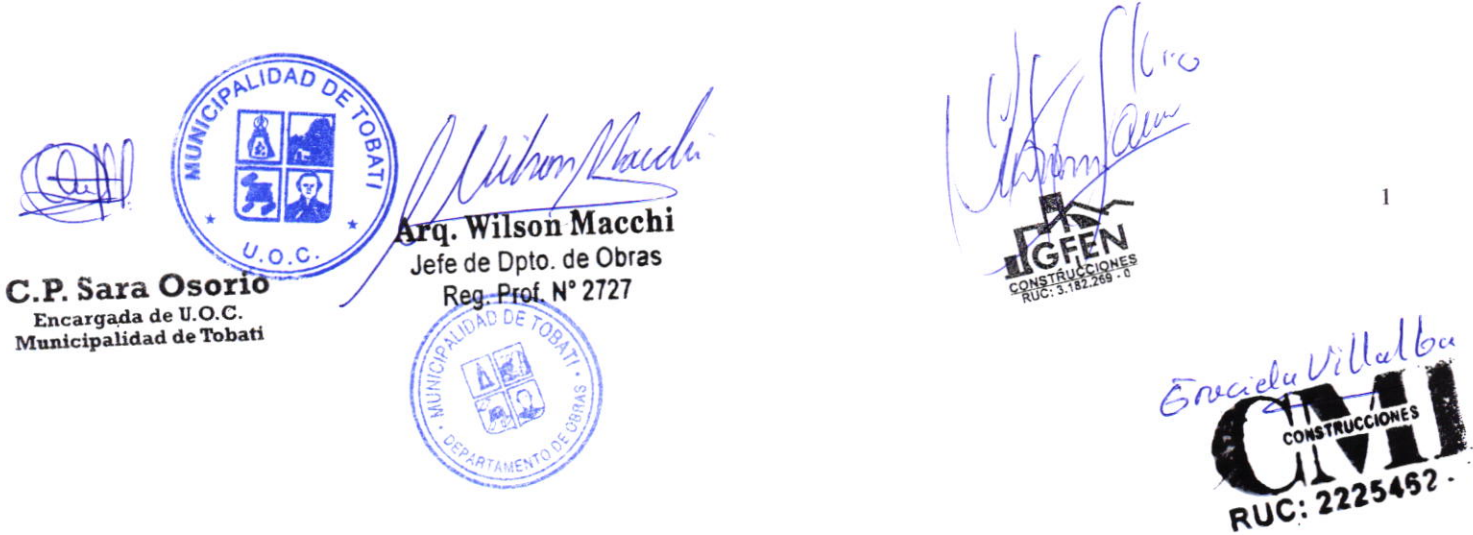 MUNICIPALIDAD DE TOBATI
U.O.C.
C.P. Sara Osorio
Encargada de U.O.C.
Municipalidad de Tobati
Wilson Macchi
Arq. Wilson Macchi
Jefe de Dpto. de Obras
Reg. Prof. N° 2727
MUNICIPALIDAD DE TOBATI
DEPARTAMENTO DE OBRAS
GFEN
CONSTRUCCIONES
RUC: 3.182.269 - 0
1
Graciela Villalba
CMI
CONSTRUCCIONES
RUC: 2225462 -